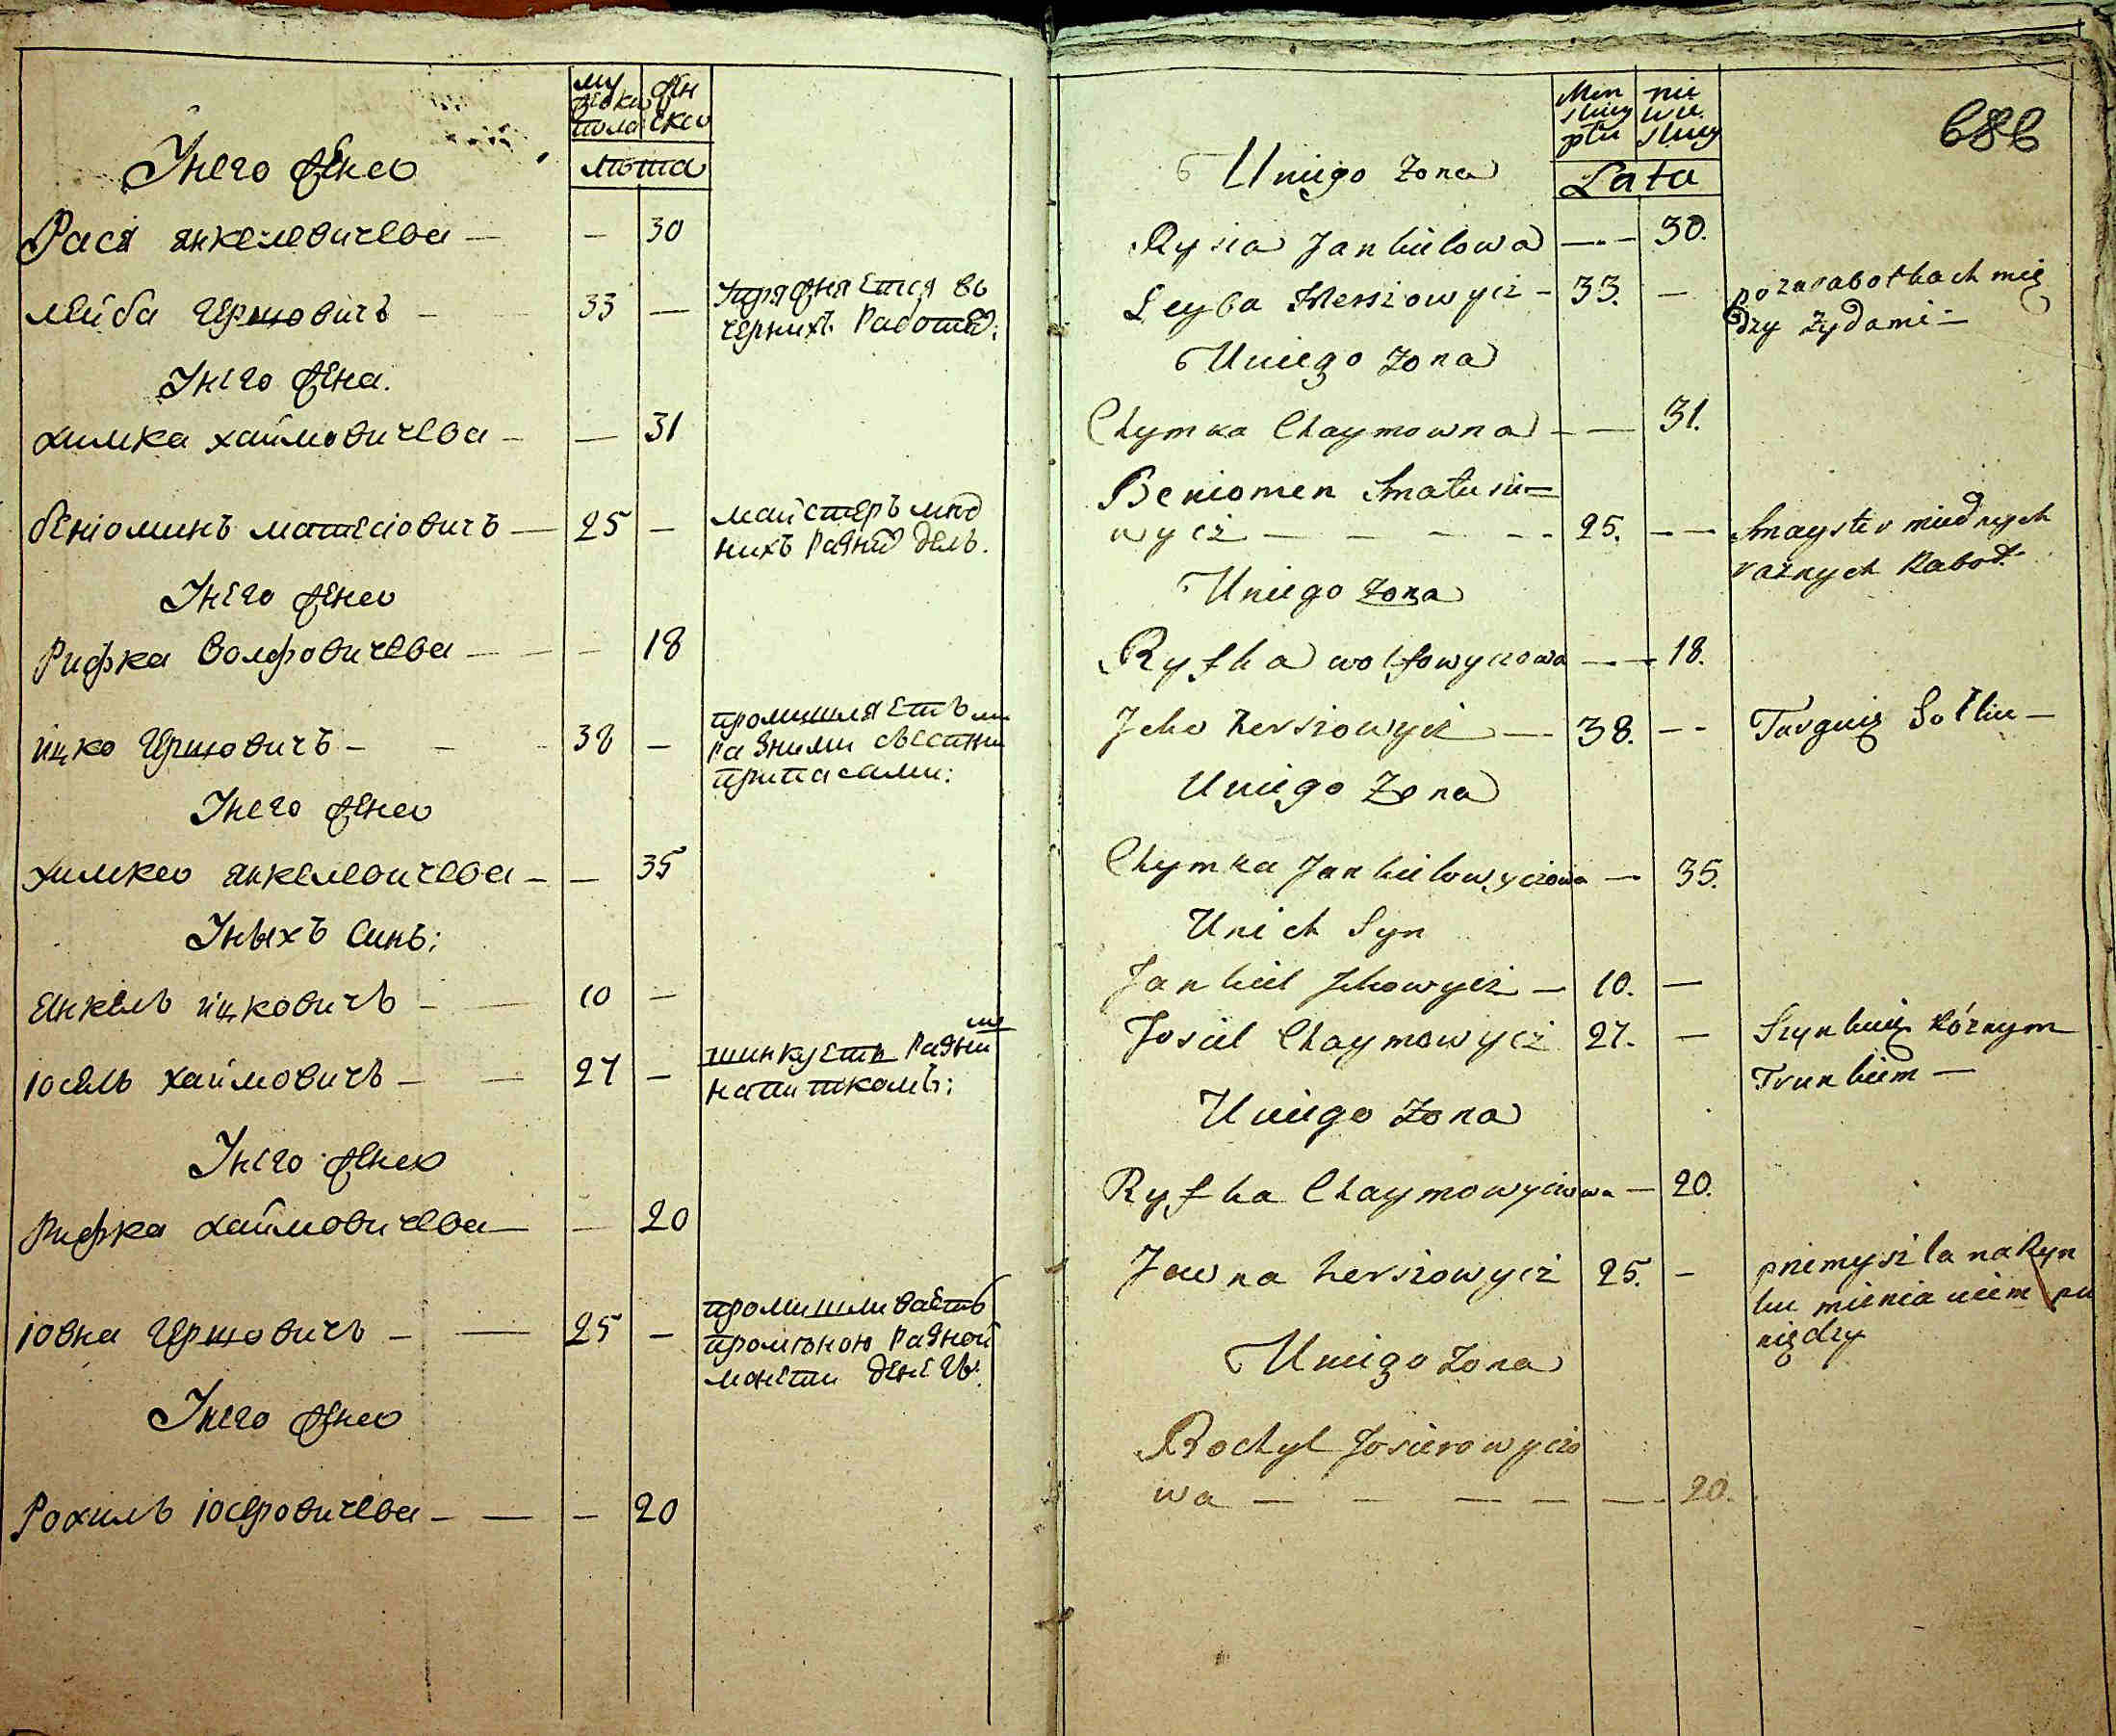 мужеска пола
женско
Унего жена
лѣта
Рася янкелевичева — — 30
лейба гершовичъ — 33 — упражняется во
черныхъ работа:
Унего жена.
химка хаймовичева — — 31
бениоминъ матесиовичъ — 25 — майстеръ мѣд
нихъ разни дѣлъ.
Унего жена
Рифка волфовичева — — 18
ицко гершовичъ — 38 — промишляетъ
разними съестни
припасами:
Унего жена
химка янкелевичева — — 35
Уныхъ синъ:
янкель ицковичъ — 10 —
иосель хаймовичъ — 27 — шинкуетъ разни
ми
напиткомъ:
Унего жена
Рифка хаймовичева — — 20
иовна гершовичъ — 25 — промишливаетъ
промѣною разной
монети денегъ.
Унего жена
Рохиль иосеровичева — — 20
686
Męn
skiey
płci
nie
wie
skiey
Uniego Zona
Lata
Rysia Jankielowa — 30.
Leyba Herszowycz — 33. — po zarabotkach mię
dzy Zydami —
Uniego Zona
Chymka Chaymowna — — 31.
Beniomen Matusie=
wycz — — — 25. — — Mayster miednych
raznych Rabot.
Uniego Zona
Ryfka wolfowyczowa — — 18.
Jcko herszowycz — 38. — — Targuię Sollю —
Uniego Zona
Chymka Jankielowyczowa — 35.
Unich Syn
Jankiel Jckowycz — 10. —
Josiel Chaymowycz 27. — Szynkuię Róznym
Trunkiem —
Uniego Zona
Ryfka Chaymowyczowa — 20.
Jowna herszowycz 25. — przemyszla na Ryn
ku mienianiem pie
niędzy
Uniego Zona
Rochyl Josierowyczo
wa — — — — — 20.